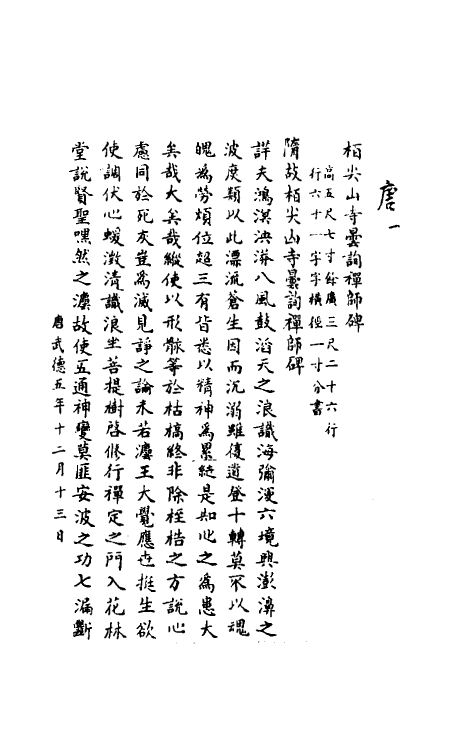 唐一
栢尖山寺曇詢禪師碑
高五尺七寸餘廣三尺二十六行
行六十一字字橫徑一寸分書
隋故栢尖山寺曇詢禪師碑
詳夫鴻溟泱漭八風鼓滔天之浪識海彌漫六境興澎濞之
波庶類以此漂流蒼生因而沉溺雖復道登十轉莫不以魂
魄為勞煩位超三有皆悉以精神為累縋是知心之為患大
矣哉大矣哉縱使以形骸等於枯槁終非除桎梏之方說心
慮同於死灰豈為滅見諍之論未若灋王大覺應世挺生欲
使調伏心蝯澂清識浪坐菩提樹啓修行禪定之門入花林
堂說賢聖嘿然之灋故使五通神變莫匪安波之功七漏斷
唐武德五年十二月十三日